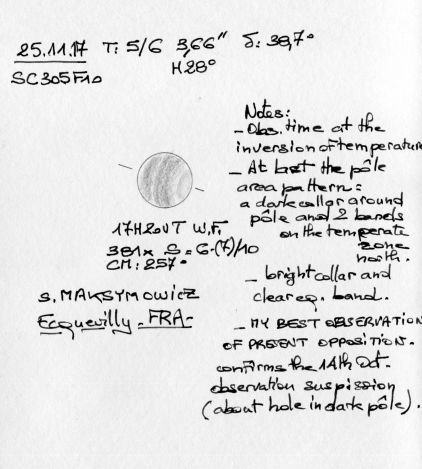 25.11.17 T: 5/6 3,66" δ: 38,7°
H 28°
SC305F10
Notes:
- Obs. time at the
inversion of temperature
- At last the pôle
area pattern:
a dark collar around
pôle and 2 bands
on the temperate
zone
north.
- bright collar and
clear eq. band.
- MY BEST OBSERVATION
OF PRESENT OPPOSITION.
confirms the 14th Oct.
observation suspission
(about hole in dark pôle).
17H20UT W.F.
381x S = 6-(7)/10
CM: 257°
S. MAKSYMOWICZ
Ecquevilly - FRA-